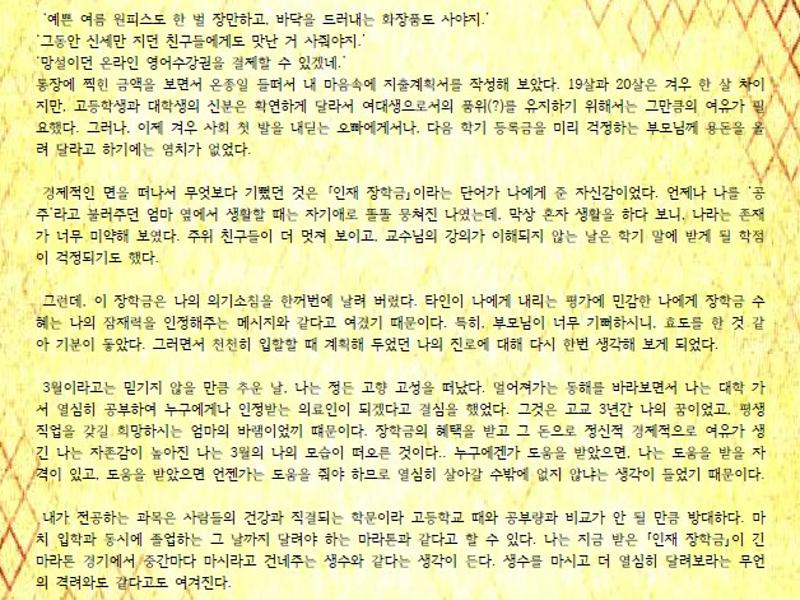 '예쁜 여름 원피스도 한 벌 장만하고, 바닥을 드러내는 화장품도 사야지.'
'그동안 신세만 지던 친구들에게도 맛난 거 사줘야지.'
'망설이던 온라인 영어수강권을 결제할 수 있겠네.'
통장에 찍힌 금액을 보면서 온종일 들떠서 내 마음속에 지출계획서를 작성해 보았다. 19살과 20살은 겨우 한 살 차이
지만, 고등학생과 대학생의 신분은 확연하게 달라서 여대생으로서의 품위(?)를 유지하기 위해서는 그만큼의 여유가 필
요했다. 그러나, 이제 겨우 사회 첫 발을 내딛는 오빠에게서나, 다음 학기 등록금을 미리 걱정하는 부모님께 용돈을 올
려 달라고 하기에는 염치가 없었다.
경제적인 면을 떠나서 무엇보다 기뻤던 것은 「인재 장학금」이라는 단어가 나에게 준 자신감이었다. 언제나 나를 '공
주'라고 불러주던 엄마 옆에서 생활할 때는 자기애로 똘똘 뭉쳐진 나였는데, 막상 혼자 생활을 하다 보니, 나라는 존재
가 너무 미약해 보였다. 주위 친구들이 더 멋져 보이고, 교수님의 강의가 이해되지 않는 날은 학기 말에 받게 될 학점
이 걱정되기도 했다.
그런데, 이 장학금은 나의 의기소침을 한꺼번에 날려 버렸다. 타인이 나에게 내리는 평가에 민감한 나에게 장학금 수
혜는 나의 잠재력을 인정해주는 메시지와 같다고 여겼기 때문이다. 특히, 부모님이 너무 기뻐하시니, 효도를 한 것 같
아 기분이 좋았다. 그러면서 천천히 입할할 때 계획해 두었던 나의 진로에 대해 다시 한번 생각해 보게 되었다.
3월이라고는 믿기지 않을 만큼 추운 날, 나는 정든 고향 고성을 떠났다. 멀어져가는 동해를 바라보면서 나는 대학 가
서 열심히 공부하여 누구에게나 인정받는 의료인이 되겠다고 결심을 했었다. 그것은 고교 3년간 나의 꿈이었고, 평생
직업을 갖길 희망하시는 엄마의 바램이었끼 떄문이다. 장학금의 혜택을 받고 그 돈으로 정신적 경제적으로 여유가 생
긴 나는 자존감이 높아진 나는 3월의 나의 모습이 떠오른 것이다.. 누구에겐가 도움을 받았으면, 나는 도움을 받을 자
격이 있고, 도움을 받았으면 언젠가는 도움을 줘야 하므로 열심히 살아갈 수밖에 없지 않냐는 생각이 들었기 때문이다.
내가 전공하는 과목은 사람들의 건강과 직결되는 학문이라 고등학교 때와 공부량과 비교가 안 될 만큼 방대하다. 마
치 입학과 동시에 졸업하는 그 날까지 달려야 하는 마라톤과 같다고 할 수 있다. 나는 지금 받은 「인재 장학금」이 긴
마라톤 경기에서 중간마다 마시라고 건네주는 생수와 같다는 생각이 든다. 생수를 마시고 더 열심히 달려보라는 무언
의 격려와도 같다고도 여겨진다.